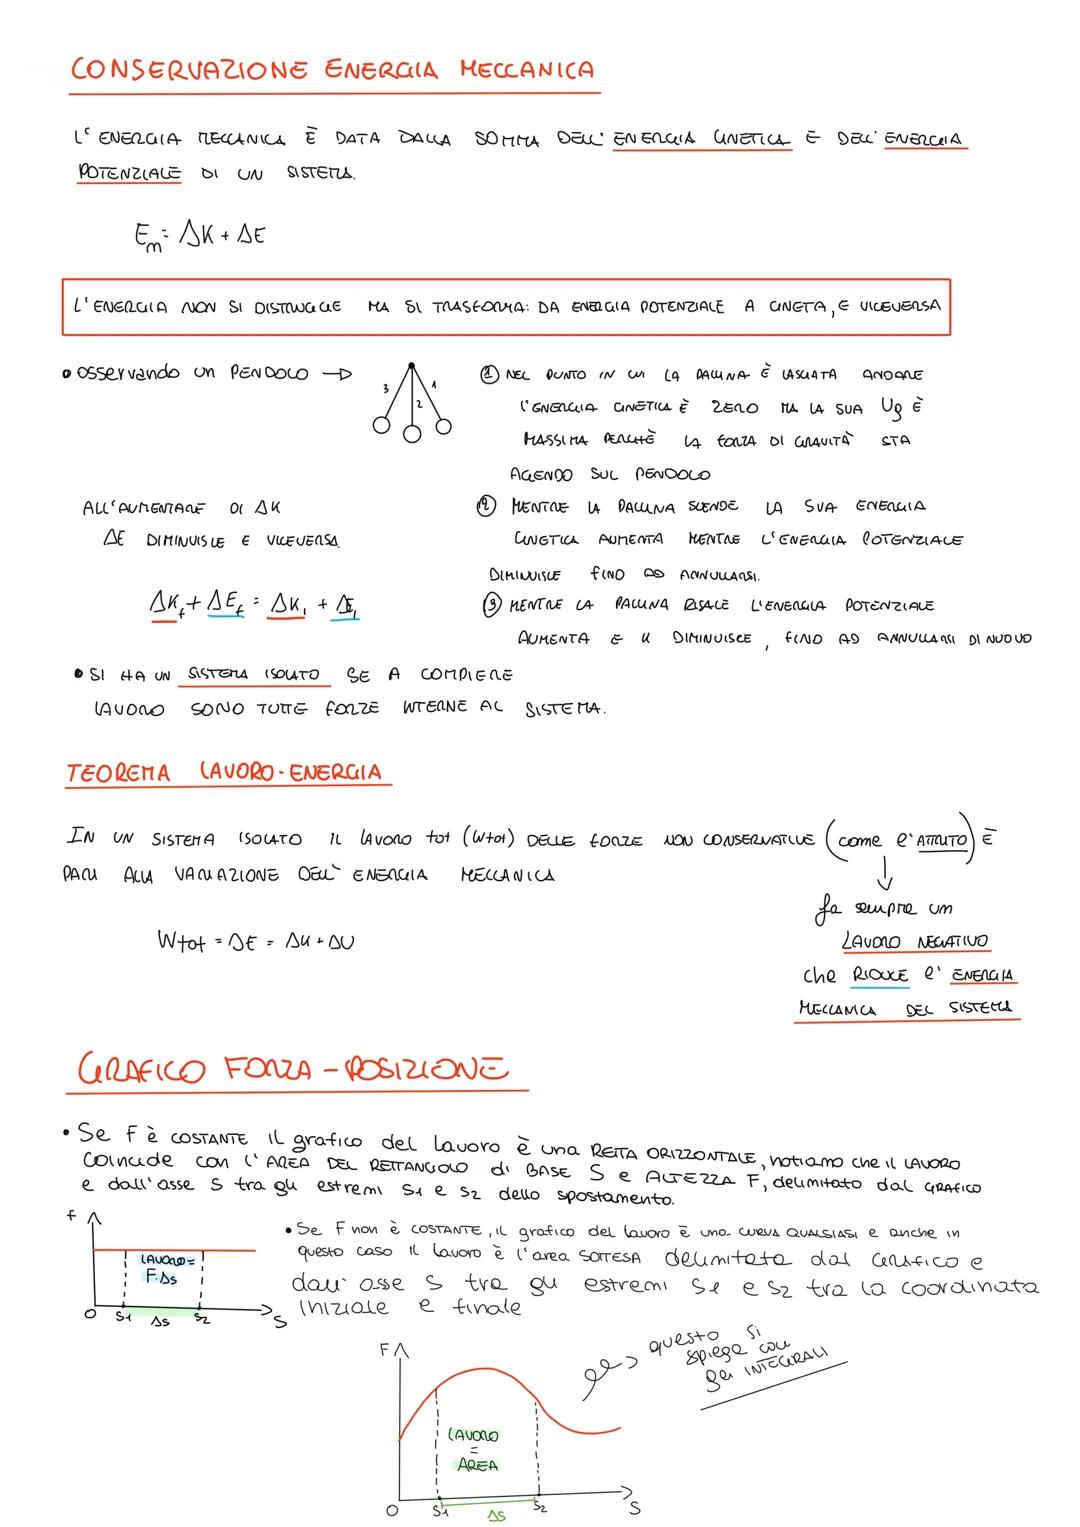 CONSERVAZIONE ENERGIA MECCANICA
L'ENERGIA MECCANICA È DATA DALLA SOMMA DELL'ENERGIA CINETICA E DELL'ENERGIA
POTENZIALE DI UN SISTEMA.
Em = ΔK + ΔE
L'ENERGIA NON SI DISTRUGGE MA SI TRASFORMA: DA ENERGIA POTENZIALE A CINETA, E VICEVERSA
• osservando un PENDOLO →
3 1
2
① NEL PUNTO IN CUI LA PALLINA È LASCIATA ANDARE
L'ENERGIA CINETICA È ZERO MA LA SUA Ug È
MASSIMA PERCHÈ LA FORZA DI GRAVITÀ STA
AGENDO SUL PENDOLO
ALL'AUMENTARE DI ΔK
ΔE DIMINUISCE E VICEVERSA.
② MENTRE LA PALLINA SCENDE LA SUA ENERGIA
CINETICA AUMENTA MENTRE L'ENERGIA POTENZIALE
DIMINUISCE FINO AD ANNULLARSI.
ΔKf + ΔEf = ΔKi + ΔEi
③ MENTRE LA PALLINA RISALE L'ENERGIA POTENZIALE
AUMENTA E K DIMINUISCE, FINO AD ANNULLARSI DI NUOVO
• SI HA UN SISTEMA ISOLATO SE A COMPIERE
LAVORO SONO TUTTE FORZE INTERNE AL SISTEMA.
TEOREMA LAVORO-ENERGIA
IN UN SISTEMA ISOLATO IL LAVORO tot (Wtot) DELLE FORZE NON CONSERVATIVE (come l'ATTRITO) È
PARI ALLA VARIAZIONE DELL'ENERGIA MECCANICA
Wtot = ΔE = ΔK + ΔU
fa sempre un
LAVORO NEGATIVO
che RIDUCE l'ENERGIA
MECCANICA DEL SISTEMA
GRAFICO FORZA-POSIZIONE
• Se F è COSTANTE il grafico del lavoro è una RETTA ORIZZONTALE, notiamo che il LAVORO
coincide con l'AREA DEL RETTANGOLO di BASE S e ALTEZZA F, delimitato dal GRAFICO
e dall'asse S tra gli estremi S1 e S2 dello spostamento.
F
LAVORO =
F.Δs
O S1 Δs S2 S
• Se F non è COSTANTE, il grafico del lavoro è una CURVA QUALSIASI e anche in
questo caso il lavoro è l'area SOTTESA delimitata dal Grafico e
dall'asse S tra gli estremi S1 e S2 tra la coordinata
iniziale e finale
questo si
spiega con
gli INTEGRALI
F
LAVORO
=
AREA
O S1 Δs S2 S